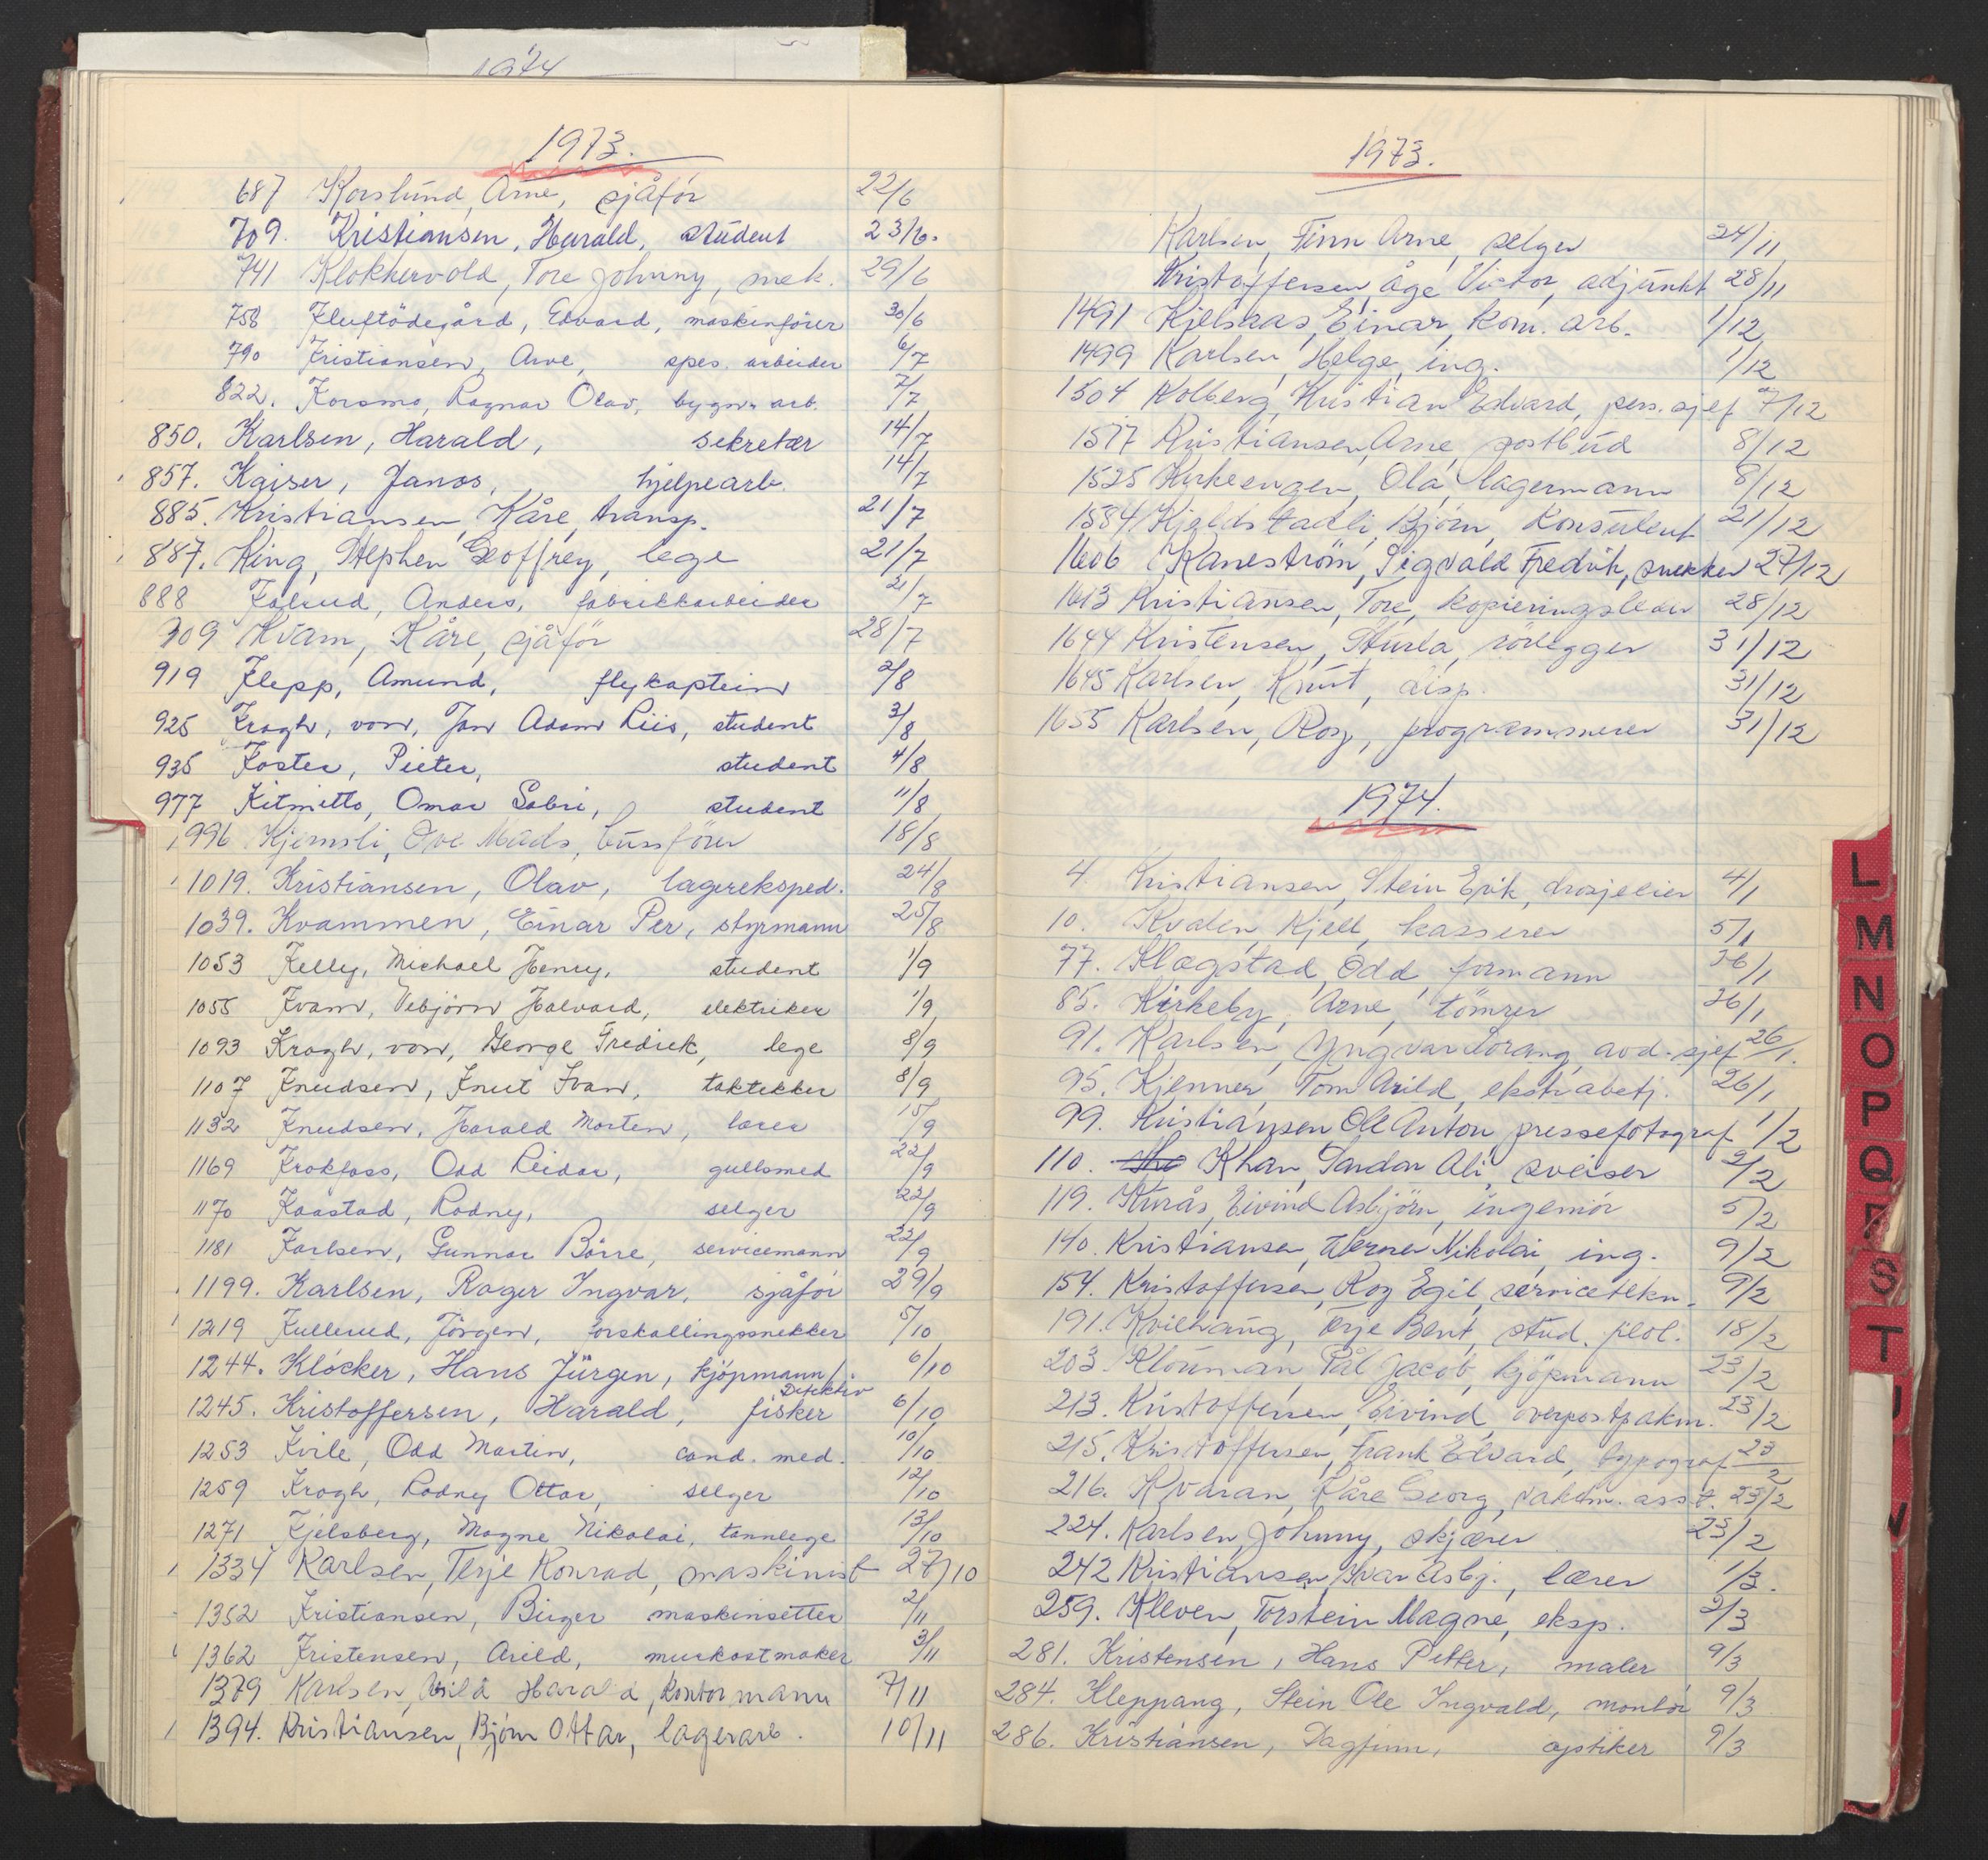 1974
1973.
687 Korslund, Arne, sjåför 22/6
709. Kristiansen, Harald, student 23/6.
741 Klokkervold, Tore Johnny, mek. 29/6
758 Kluftödegård, Edvard, maskinförer 30/6
790 Kristiansen, Arve, spes. arbeider 6/7
822. Korsmo, Ragnar Olav, bygn. arb. 7/7
850. Karlsen, Harald, sekretær 14/7
857. Kaiser, Janos, hjelpearb. 14/7
885. Kristiansen, Kåre, transp. 21/7
887. King, Stephen Geoffrey, lege 21/7
888 Kolrud, Anders, fabrikkarbeider 21/7
909 Kvam, Kåre, sjåför 28/7
919 Klepp, Amund, flykaptein 2/8
925 Krogh, von, Jan Adam Riis, student 3/8
935 Koster, Pieter, student 4/8
977 Kitmitto, Omar Sabri, student 11/8
996 Kjemsli, Ove Mads, bussförer 18/8
1019. Kristiansen, Olav, lagereksped. 24/8
1039. Kvammen, Einar Per, styrmann 25/8
1053 Kelly, Michael Henry, student 1/9
1055 Kvam, Vebjörn Halvard, elektriker 1/9
1093 Krogh, von, George Fredrik, lege 8/9
1107 Knudsen, Knut Ivan, taktekker 8/9
1132 Knudsen, Harald Morten, lærer 15/9
1169 Krokfoss, Odd Reidar, gullsmed 22/9
1170 Kaastad, Rodney, selger 22/9
1181 Karlsen, Gunnar Börre, servicemann 22/9
1199. Karlsen, Roger Ingvar, sjåför 29/9
1219 Kullerud, Jörgen, forskallingssnekker 5/10
1244. Klöcker, Hans Jürgen, kjöpmann/ 6/10
Detektiv
1245. Kristoffersen, Harald, fisker 6/10
1253 Kvile, Odd Martin, cand. med. 10/10
1259 Krogh, Rodney Ottar, selger 12/10
1271 Kjelsberg, Magne Nikolai, tannlege 13/10
1334 Karlsen, Terje Konrad, maskinist 27/10
1352 Kristiansen, Birger maskinsetter 2/11
1362 Kristensen, Arild, murkostmaker 3/11
1379 Karlsen, Arild Harald, kontormann 7/11
1394. Kristiansen, Bjørn Ottar, lagerarb. 10/11
1973.
Karlsen, Finn Arne, selger 24/11
Kristoffersen, Åge Victor, adjunkt 28/11
1491 Kjelsaas, Einar, kom. arb. 1/12
1499 Karlsen, Helge, ing. 1/12
1504 Kolberg, Kristian Edvard, pers. sjef 7/12
1517 Kristiansen, Arne, postbud 8/12
1525 Kirkeengen, Ola, lagermann 8/12
1584 Kjeldstadli, Bjørn, konsulent 21/12
1606 Kanestrøm, Sigvald Fredrik, snekker 27/12
1613 Kristiansen, Tore, kopieringsleder 28/12
1644 Kristensen, Sturla, rörlegger 31/12
1645 Karlsen, Knut, disp. 31/12
1655 Karlsen, Roy, programmerer 31/12
1974.
4. Kristiansen, Stein Erik, drosjeeier 4/1
10. Kvalen, Kjell, kasserer 5/1
77. Klægstad, Odd, formann 26/1
85. Kirkeby, Arne, tömrer 26/1
91. Karlsen, Yngvar Lorang, avd. sjef 26/1.
95. Kjenner, Tom Arild, ekstrabetj. 26/1
99. Kristiansen Ole Anton pressefotograf 1/2
110. Khan, Sardar Ali, sveiser 2/2
119. Kurås, Eivind Asbjörn, ingeniør 5/2
140. Kristiansen, Werner Nikolai, ing. 9/2
154. Kristoffersen, Roy Egil, servicetekn. 9/2
191. Kvilhaug, Terje Bent, stud. filol. 18/2
203. Klouman, Pål Jacob, kjöpmann 23/2
213. Kristoffersen, Eivind, overpostpakm. 23/2
215. Kristoffersen, Frank Edvard, typograf 23/2
216. Kjvaran, Kåre Georg, vaktm. asst. 23/2
224. Karlsen, Johnny, skjærer 23/2
242 Kristiansen, Ivar Asbj., lærer 1/3.
259. Kleven, Torstein Magne, eksp. 2/3
281. Kristensen, Hans Petter, maler 9/3
284. Kleppang, Stein Ole Ingvald, montör 9/3
286. Kristiansen, Dagfinn, optiker 9/3
L
M
N
O
P
Q
R
S
T
U
V